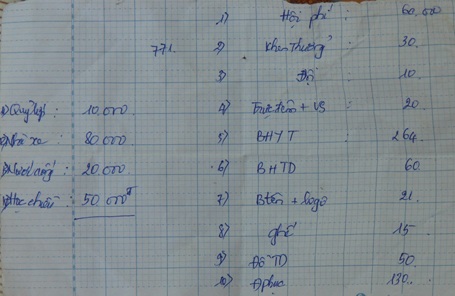 1) Hội phí : 60.000
771. 2) Khen thưởng : 30.
3) Đội : 10.
Quỹ lớp : 10,000 4) Trực trên + VS : 20
Nhà xe : 80.000 5) BHYT : 264.
Nước uống : 20.000 6) BHTD 60
Học chiều : 50 000đ 7) B tên + logo : 21.
8) ghế : 15
9) Đồ TD : 50
10) Đphục : 130.